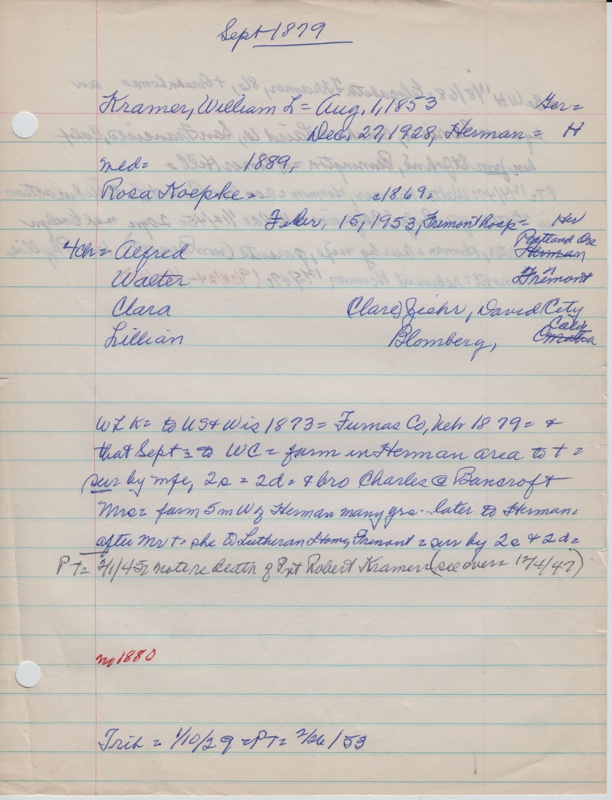 Sept 1879
Kramer, William L = Aug, 1, 1853 Ger =
Dec, 27, 1928, Herman = H
med = 1889,
Rosa Koepke = c1869 =
Feber, 15, 1953, Fremont hosp = Her
4ch = Alfred Portland Ore Herman
Walter " Fremont
Clara Clare) Ziehr, David City
Lillian Blomberg, Calif Omaha
WLK = to US & Wis 1873 = Furnas Co, Neb 1879 = &
that Sept = to WC = farm in Herman area to t =
sur by mfe, 2s = 2d = & bro Charles @ Bancroft
Mrs = farm 5m W of Herman many yrs -- later to Herman =
after Mr t = she to Lutheran Home, Fremont = sur by 2s & 2d =
PT = 2/1/45 note re death of Pvt Robert Kramer (see over = 12/4/47)
no 1880
Trib = 1/10/29 = PT = 2/26/53